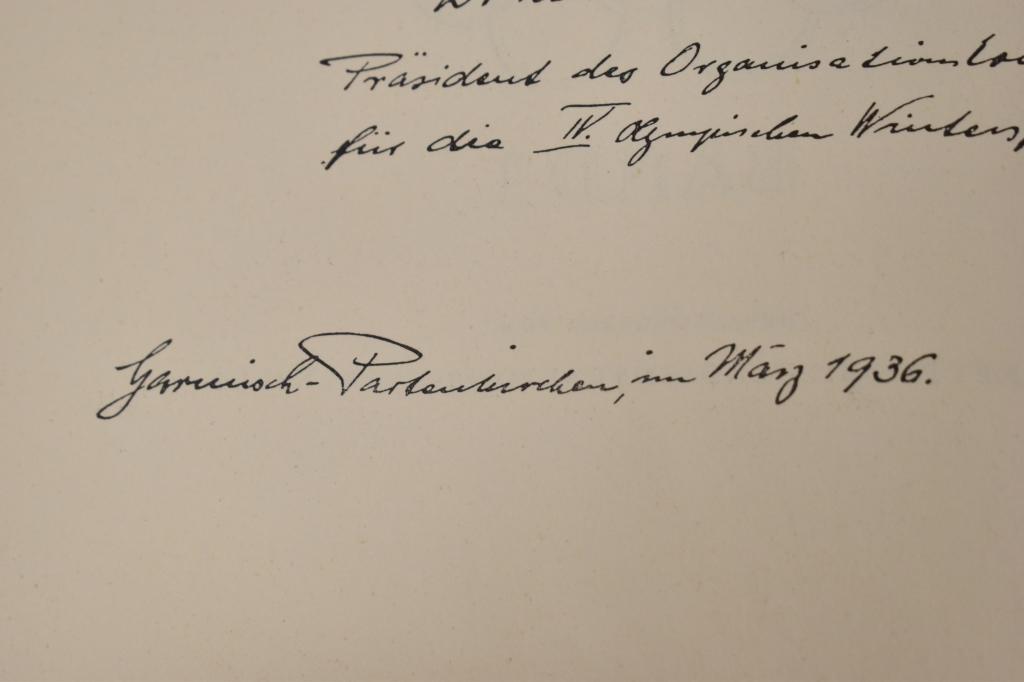 Präsident des Organisationsko
für die IV. Olympischen Winters
Garmisch-Partenkirchen, im März 1936.